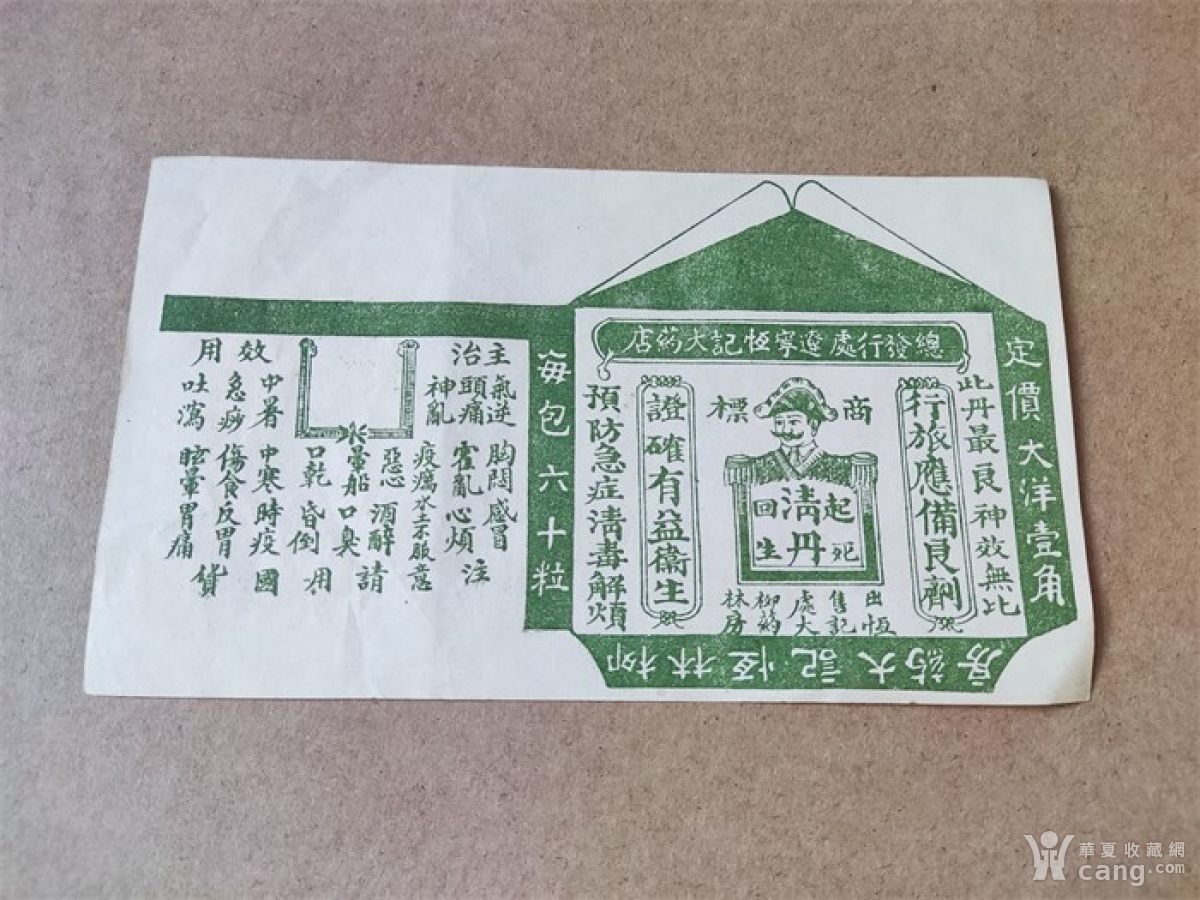 定價大洋壹角
總發行處遼寧恆記大葯店
此丹最良神效無比
行旅應備良劑
商標
起死回生
清丹
出售處柳林
恆記大葯房
證確有益衞生
預防急症清毒解煩
柳林恆記大葯房
每包六十粒
主治效用
氣逆 胸悶感冒
頭痛 霍亂心煩
神亂 疫癘水土不服
惡 酒醉
暈船口臭
口乾昏倒
中暑 中寒時疫
急痧 傷食反胃
吐瀉 眩暈胃痛
注意請用國貨
華夏收藏網
cang.com